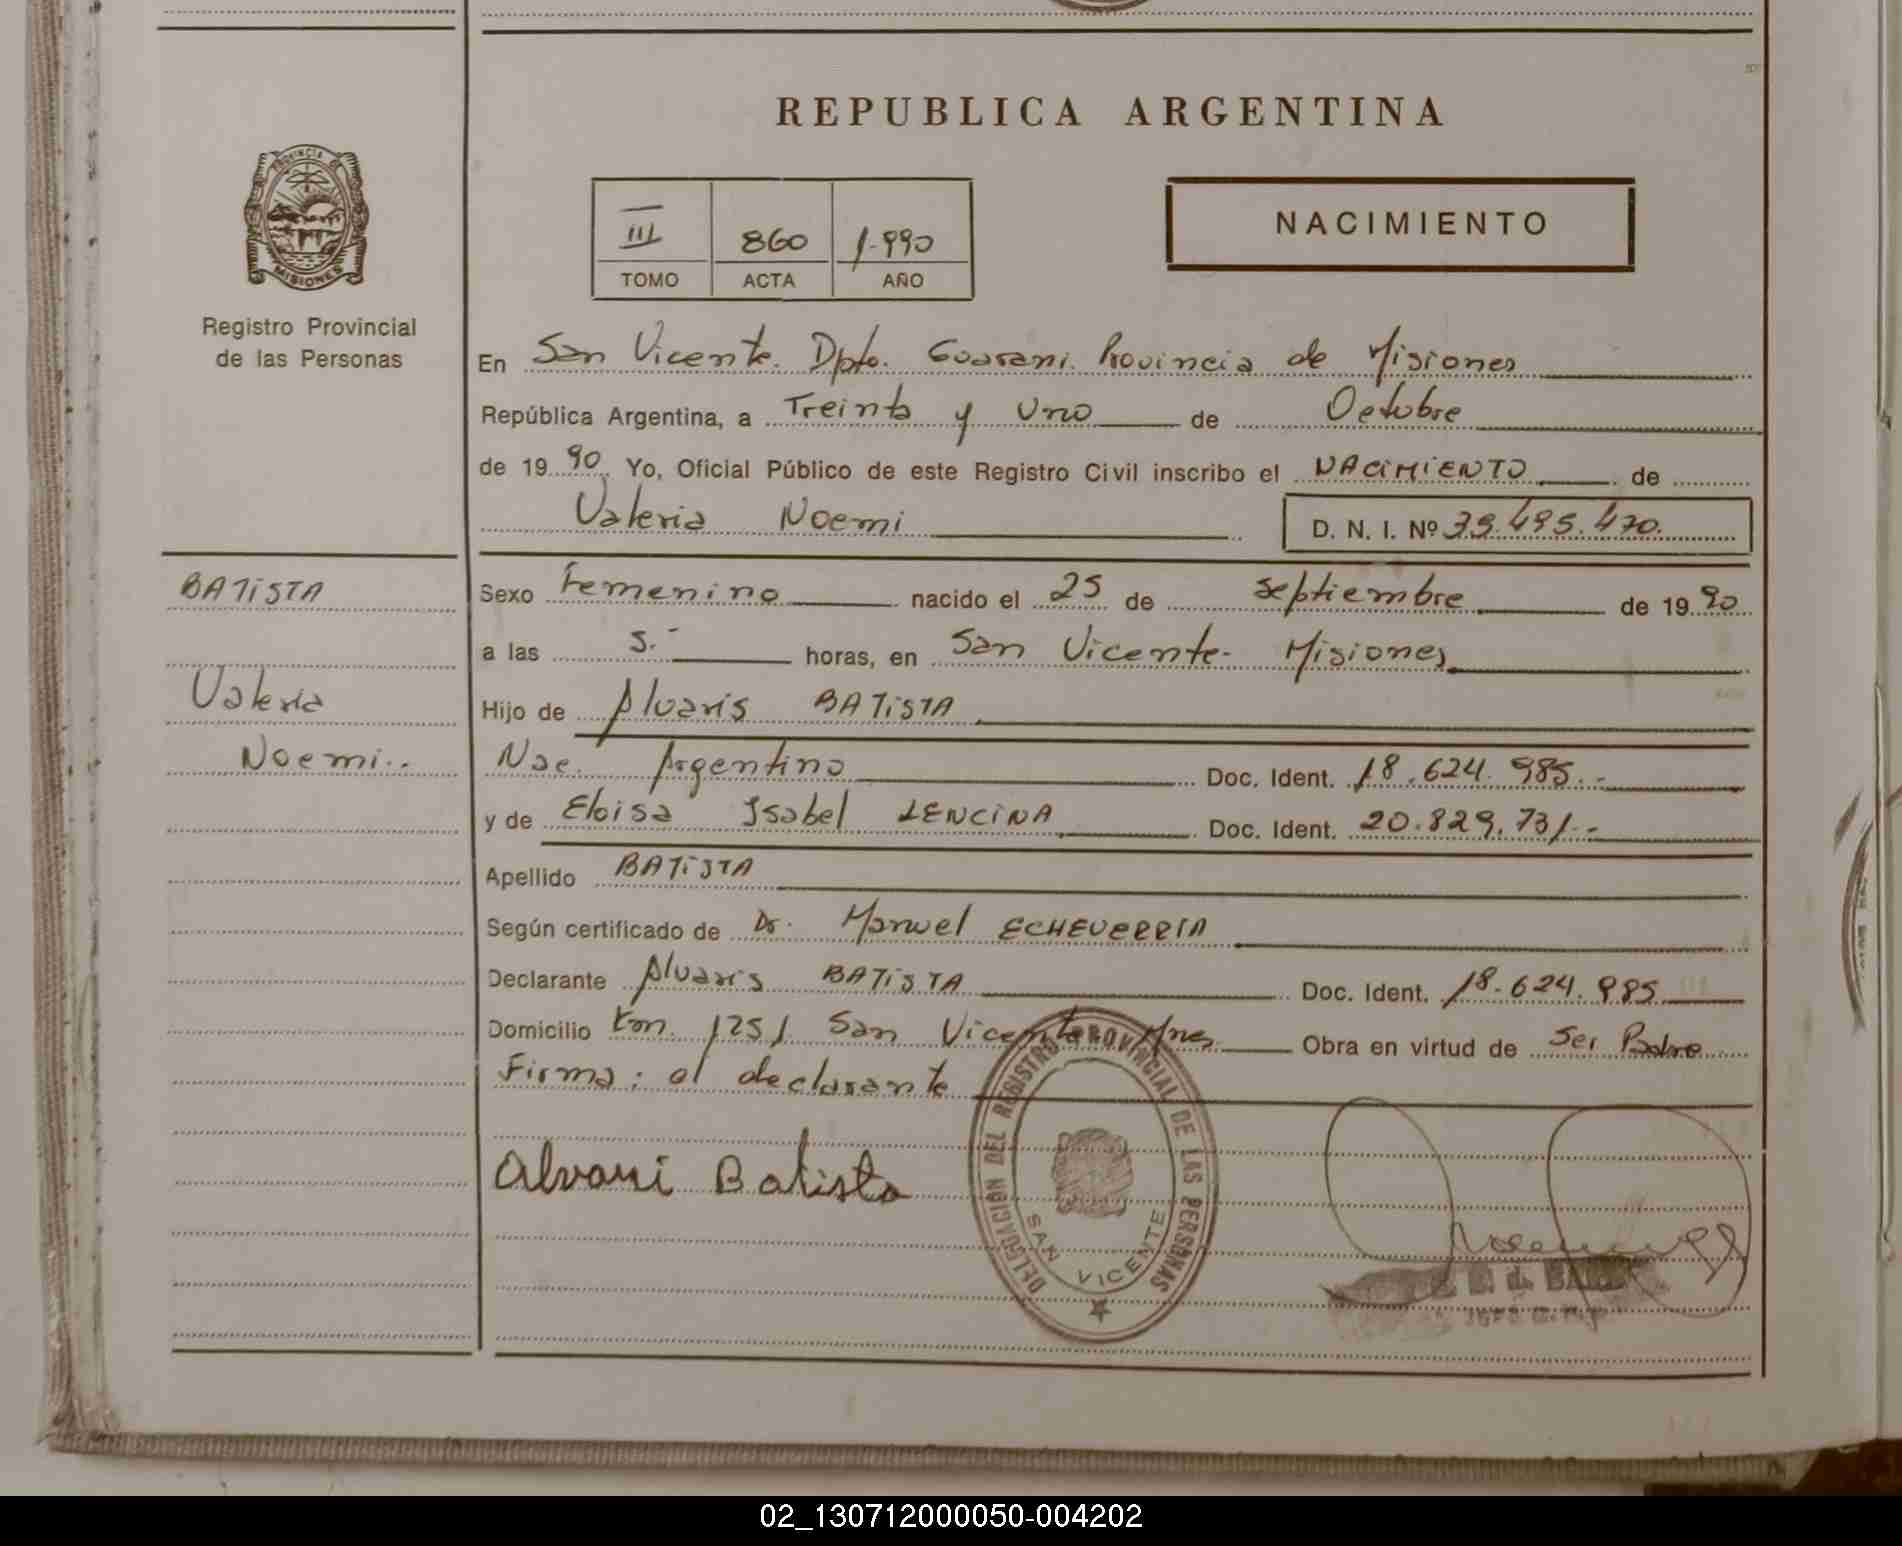 REPUBLICA ARGENTINA
PROVINCIA DE
MISIONES
Registro Provincial
de las Personas
III 860 1.990
TOMO ACTA AÑO
NACIMIENTO
En San Vicente. Dpto. Guarani. Provincia de Misiones
República Argentina, a Treinta y Uno de Octubre
de 1990. Yo, Oficial Público de este Registro Civil inscribo el NACIMIENTO de
Valeria Noemi D. N. I. Nº 35.495.470.
BATISTA
Valeria
Noemi..
Sexo Femenino nacido el 25 de Septiembre de 1990
a las 5.- horas, en San Vicente- Misiones
Hijo de Alvaris BATISTA
Nac. Argentino Doc. Ident. 18.624.985.-
y de Eloisa Isabel LENCINA Doc. Ident. 20.829.731.-
Apellido BATISTA
Según certificado de Dr. Manuel ECHEVERRIA
Declarante Alvaris BATISTA Doc. Ident. 18.624.985
Domicilio Km. 1251 San Vicente Mnes Obra en virtud de Ser Padre
Firma: el declarante
Alvari Batista
DELEGACION DEL REGISTRO PROVINCIAL DE LAS PERSONAS
SAN VICENTE
02_130712000050-004202